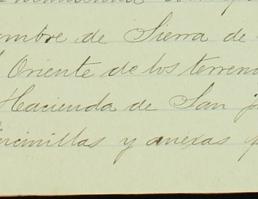 ombre de Sierra de
Oriente de los terren
Hacienda de San J
ncinillas y anexas